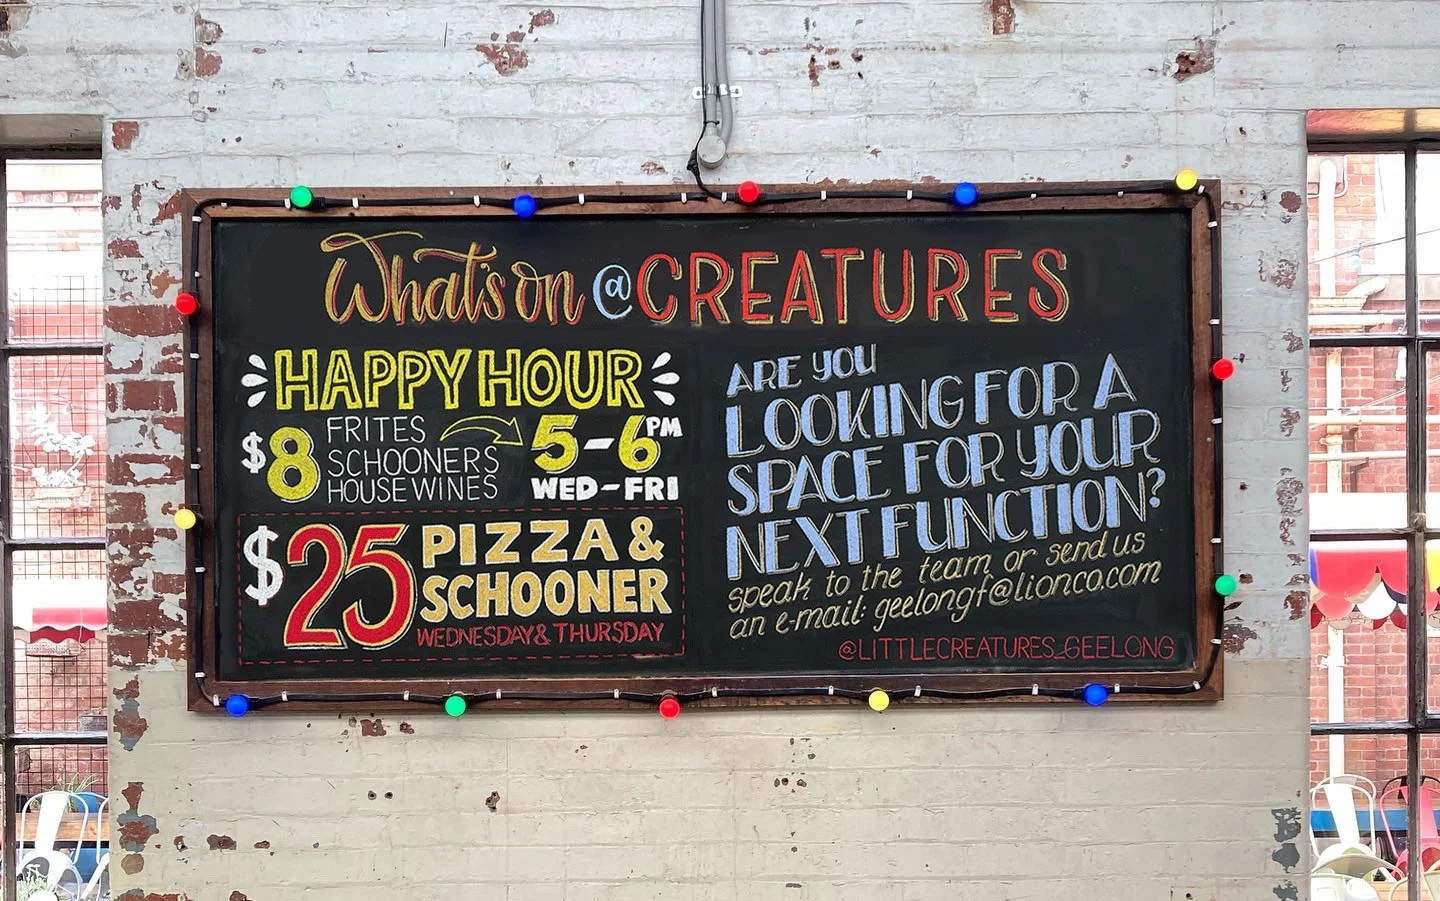 What's on @ CREATURES
HAPPY HOUR
$8 FRITES
SCHOONERS
HOUSE WINES
5-6PM
WED-FRI
$25 PIZZA &
SCHOONER
WEDNESDAY & THURSDAY
ARE YOU
LOOKING FOR A
SPACE FOR YOUR
NEXT FUNCTION?
speak to the team or send us
an e-mail: geelongf@lionco.com
@LITTLECREATURES_GEELONG